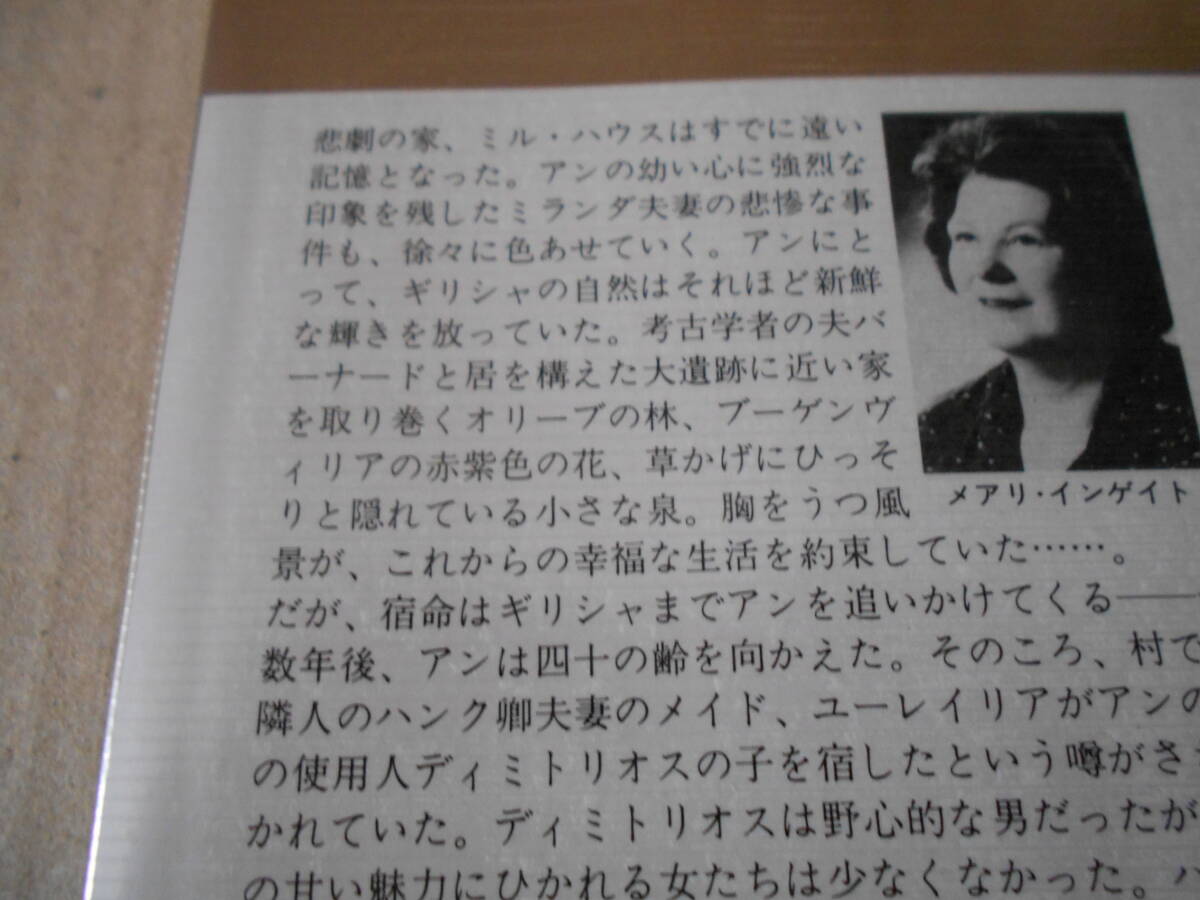 悲劇の家、ミル・ハウスはすでに遠い
記憶となった。アンの幼い心に強烈な
印象を残したミランダ夫妻の悲惨な事
件も、徐々に色あせていく。アンにと
って、ギリシャの自然はそれほど新鮮
な輝きを放っていた。考古学者の夫バ
ーナードと居を構えた大遺跡に近い家
を取り巻くオリーブの林、ブーゲンヴ
ィリアの赤紫色の花、草かげにひっそ
りと隠れている小さな泉。胸をうつ風
景が、これからの幸福な生活を約束していた……。
だが、宿命はギリシャまでアンを追いかけてくる——
数年後、アンは四十の齢を向かえた。そのころ、村で
隣人のハンク卿夫妻のメイド、ユーレイリアがアンの
の使用人ディミトリオスの子を宿したという噂がさ
かれていた。ディミトリオスは野心的な男だったが
の甘い魅力にひかれる女たちは少なくなかった。
メアリ・インゲイト